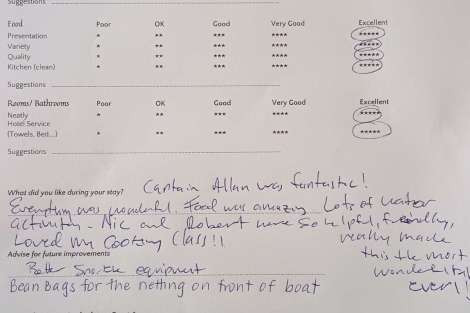 Suggestions
Food Poor OK Good Very Good Excellent
Presentation * ** *** **** *****
Variety * ** *** **** *****
Quality * ** *** **** *****
Kitchen (clean) * ** *** **** *****
Suggestions
Rooms/ Bathrooms Poor OK Good Very Good Excellent
Neatly * ** *** **** *****
Hotel Service
(Towels, Bed...) * ** *** **** *****
Suggestions
What did you like during your stay? Captain Allan was fantastic!
Everything was wonderful. Food was amazing Lots of water
activity - Nic and Robert were so helpful, friendly,
Loved my Cooking Class!! really made
this the most
Advise for future improvements
Better Snorkle equipment
Bean Bags for the netting on front of boat ever!!